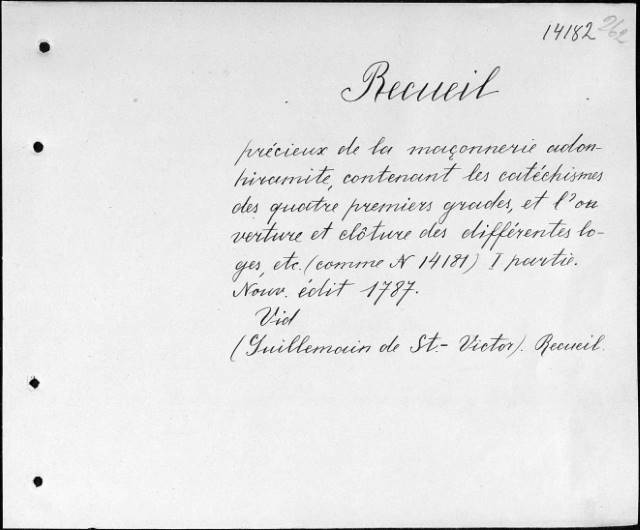 14182 262
Recueil
précieux de la maçonnerie adon-
hiramite, contenant les catéchismes
des quatre premiers grades, et l'ou
verture et clôture des différentes lo-
ges, etc. (comme N 14181) I partie.
Nouv. édit 1787.
Vid
(Guillemain de St.- Victor). Recueil.